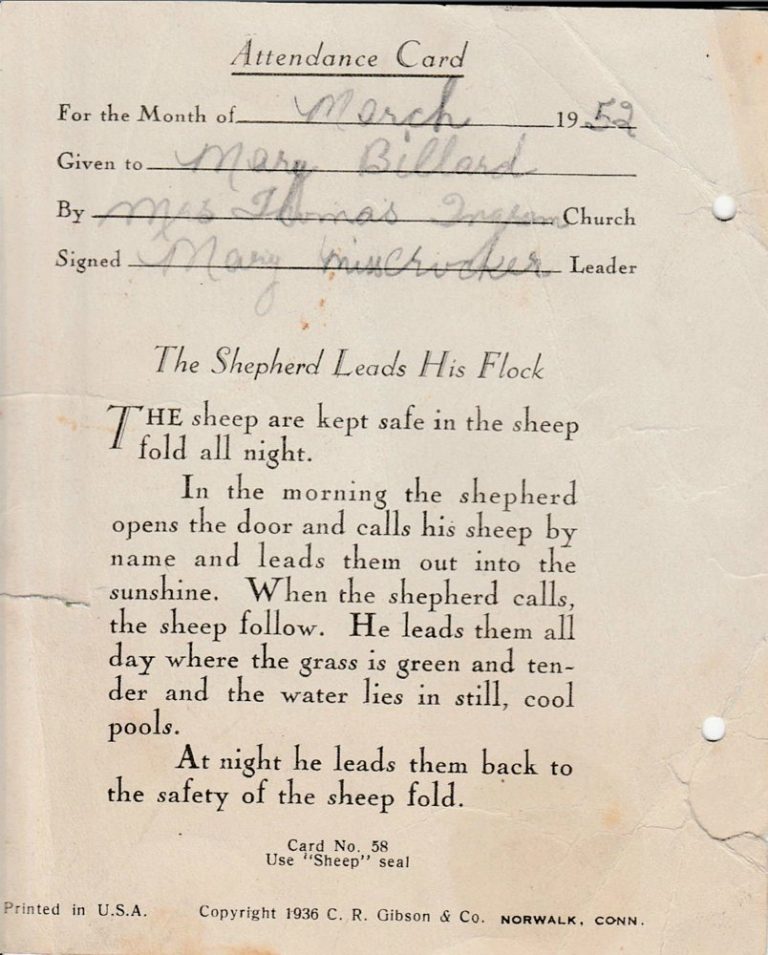 Attendance Card
For the Month of March 1952
Given to Mary Billard
By Mrs Thomas Ingram Church
Signed Mary Miss Crocker Leader
The Shepherd Leads His Flock
THE sheep are kept safe in the sheep
fold all night.
In the morning the shepherd
opens the door and calls his sheep by
name and leads them out into the
sunshine. When the shepherd calls,
the sheep follow. He leads them all
day where the grass is green and ten-
der and the water lies in still, cool
pools.
At night he leads them back to
the safety of the sheep fold.
Card No. 58
Use "Sheep" seal
Printed in U.S.A. Copyright 1936 C. R. Gibson & Co. NORWALK, CONN.